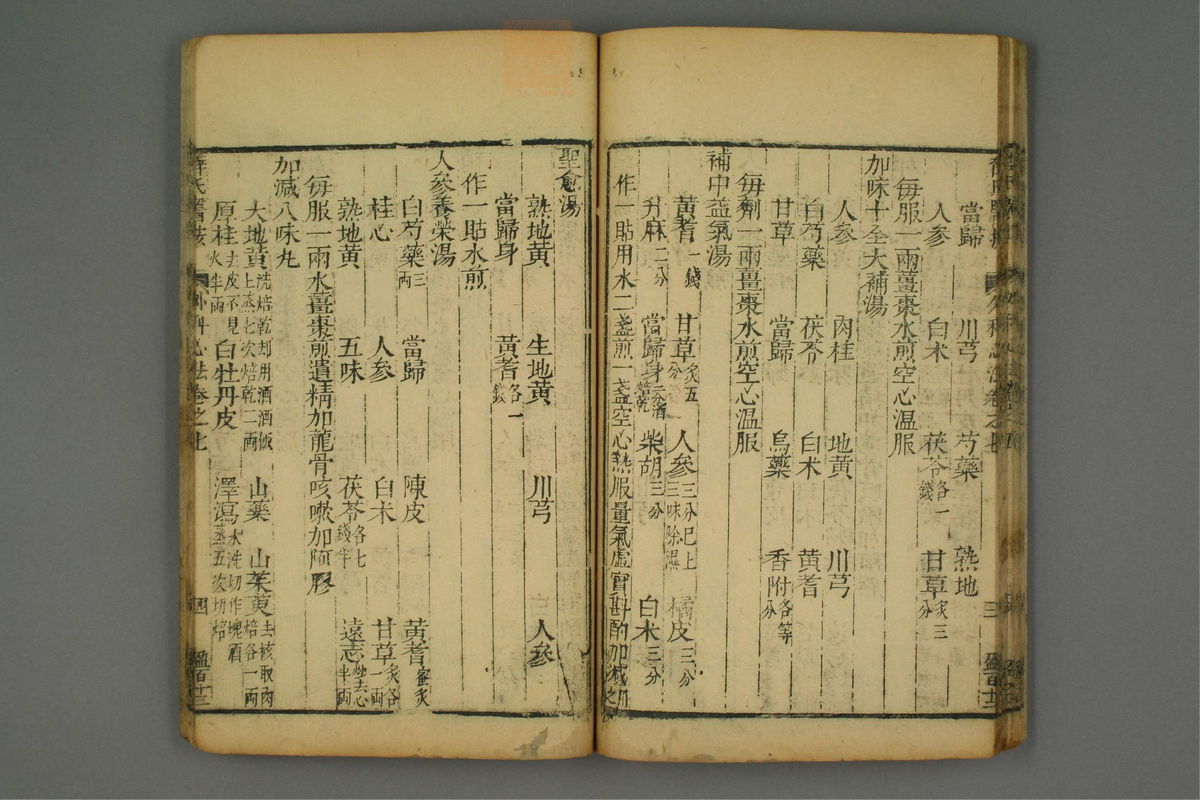 當歸 川芎 芍藥 熟地
人參 白朮 茯苓各一錢 甘草炙三分
每服一兩薑棗水煎空心温服
加味十全大補湯
人參 肉桂 地黃 川芎
白芍藥 茯苓 白朮 黃耆
甘草 當歸 烏藥 香附各等分
每劑一兩薑棗水煎空心温服
補中益氣湯
黃耆一錢 甘草炙五分 人參三分已上三味除濕 橘皮三分
升麻二分 當歸身二分酒焙乾 柴胡三分 白朮三分
作一貼用水二盞煎一盞空心熟服量氣虛實斟酌加減用之
三 盈百十二
聖愈湯
熟地黃 生地黃 川芎 人參
當歸身 黃耆各一錢
作一貼水煎
人參養榮湯
白芍藥三兩 當歸 陳皮 黃耆蜜炙
桂心 人參 白朮 甘草炙各一兩
熟地黃 五味 茯苓各七錢半 遠志去心半兩
每服一兩水薑棗煎遺精加龍骨咳嗽加阿膠
加減八味丸
大地黃洗焙乾却用酒酒飯上蒸七次焙乾二兩 山藥 山茱萸去核取肉焙各一兩
厚桂去皮不見火半兩 白牡丹皮 澤瀉水洗切作塊酒蒸五次切焙
薛氏醫按 外科心法卷之七 四 盈百十三